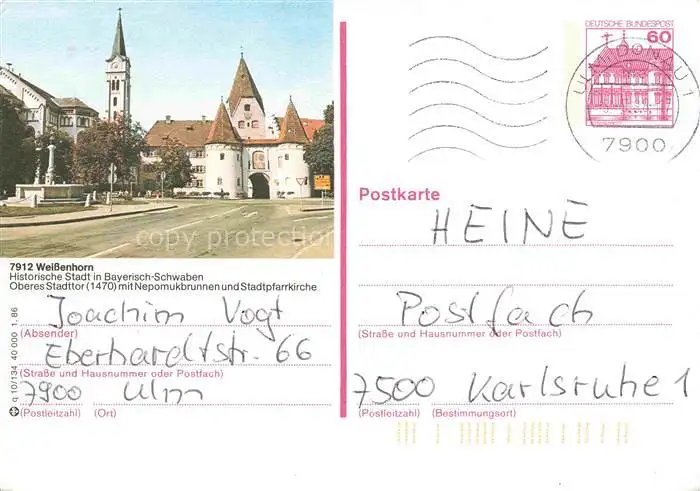 DEUTSCHE BUNDESPOST
60
ULM (DONAU) 1
7900
copyright protection
Postkarte
HEINE
7912 Weißenhorn
Historische Stadt in Bayerisch-Schwaben
Oberes Stadttor (1470) mit Nepomukbrunnen und Stadtpfarrkirche
q 10/134 40 000 1.86
Joachim Vogt
(Absender)
Eberhardtstr. 66
(Straße und Hausnummer oder Postfach)
7900 Ulm
(Postleitzahl) (Ort)
Postfach
(Straße und Hausnummer oder Postfach)
7500 Karlsruhe 1
(Postleitzahl) (Bestimmungsort)